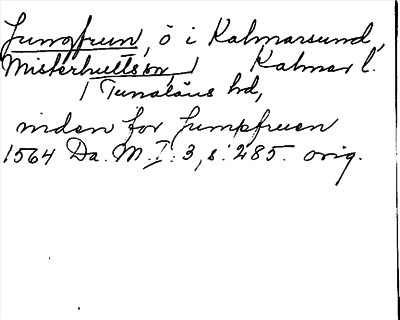 Jungfrun, ö i Kalmarsund,
Misterhults sn, Kalmar l.
Tunaläns hd,
inden for Jumpfruen
1564 Da. M. I: 3, s. 285. orig.